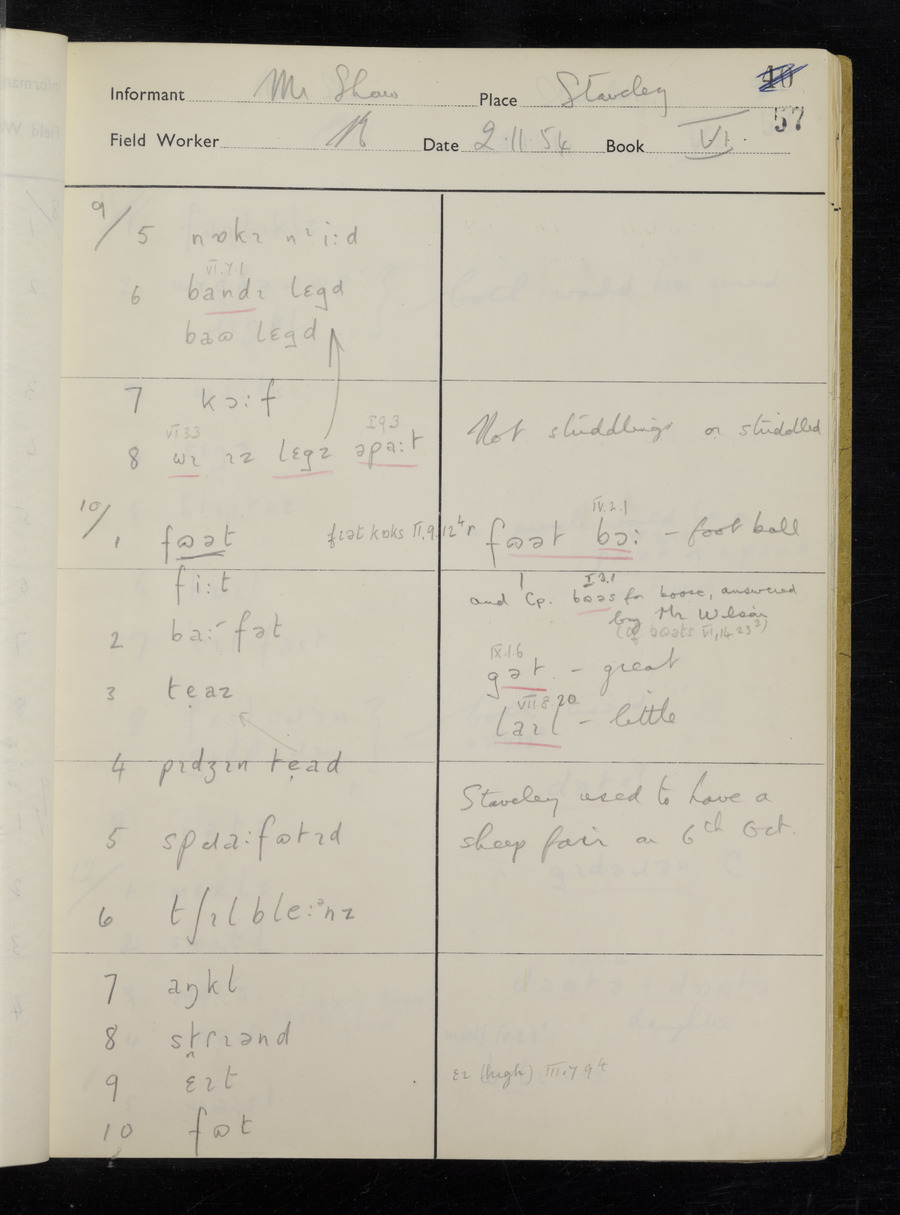 Informant Mr Shaw Place Staveley 40
57
Field Worker Date 2.11.54 Book VI.
9/ 5 nɒkɪ nɪi:d
VI.7.1
6 bandɪ lɛgd
baɷ lɛgd
7 kɔ:f
VI 3 3 I 9 3
8 wɪ ɪz lɛgz əpa:t
Not struddlings or struddled
10/ 1 fɷət
fɪət kɒks II.9.12⁴
IV.2.1
fɷət bɔ: – foot ball
fi:t
I 3.1
and Cp. bɷəs for boose, answered
by Mr Wilson
VI,14.23²)
2 ba:fət
3 tẹaz
IX.1.6
gət – great
VII.8.20
laɪl – little
4 pɪdʒɪn tẹad
5 spɹa:fɷtɪd
Staveley used to have a
sheep fair on 6th Oct.
6 tʃɪlble:ᵊnz
7 aŋkl
8 strɪənd
9 ɛɪt
ɛɪ (high) III.7 9⁴
10 fɷt